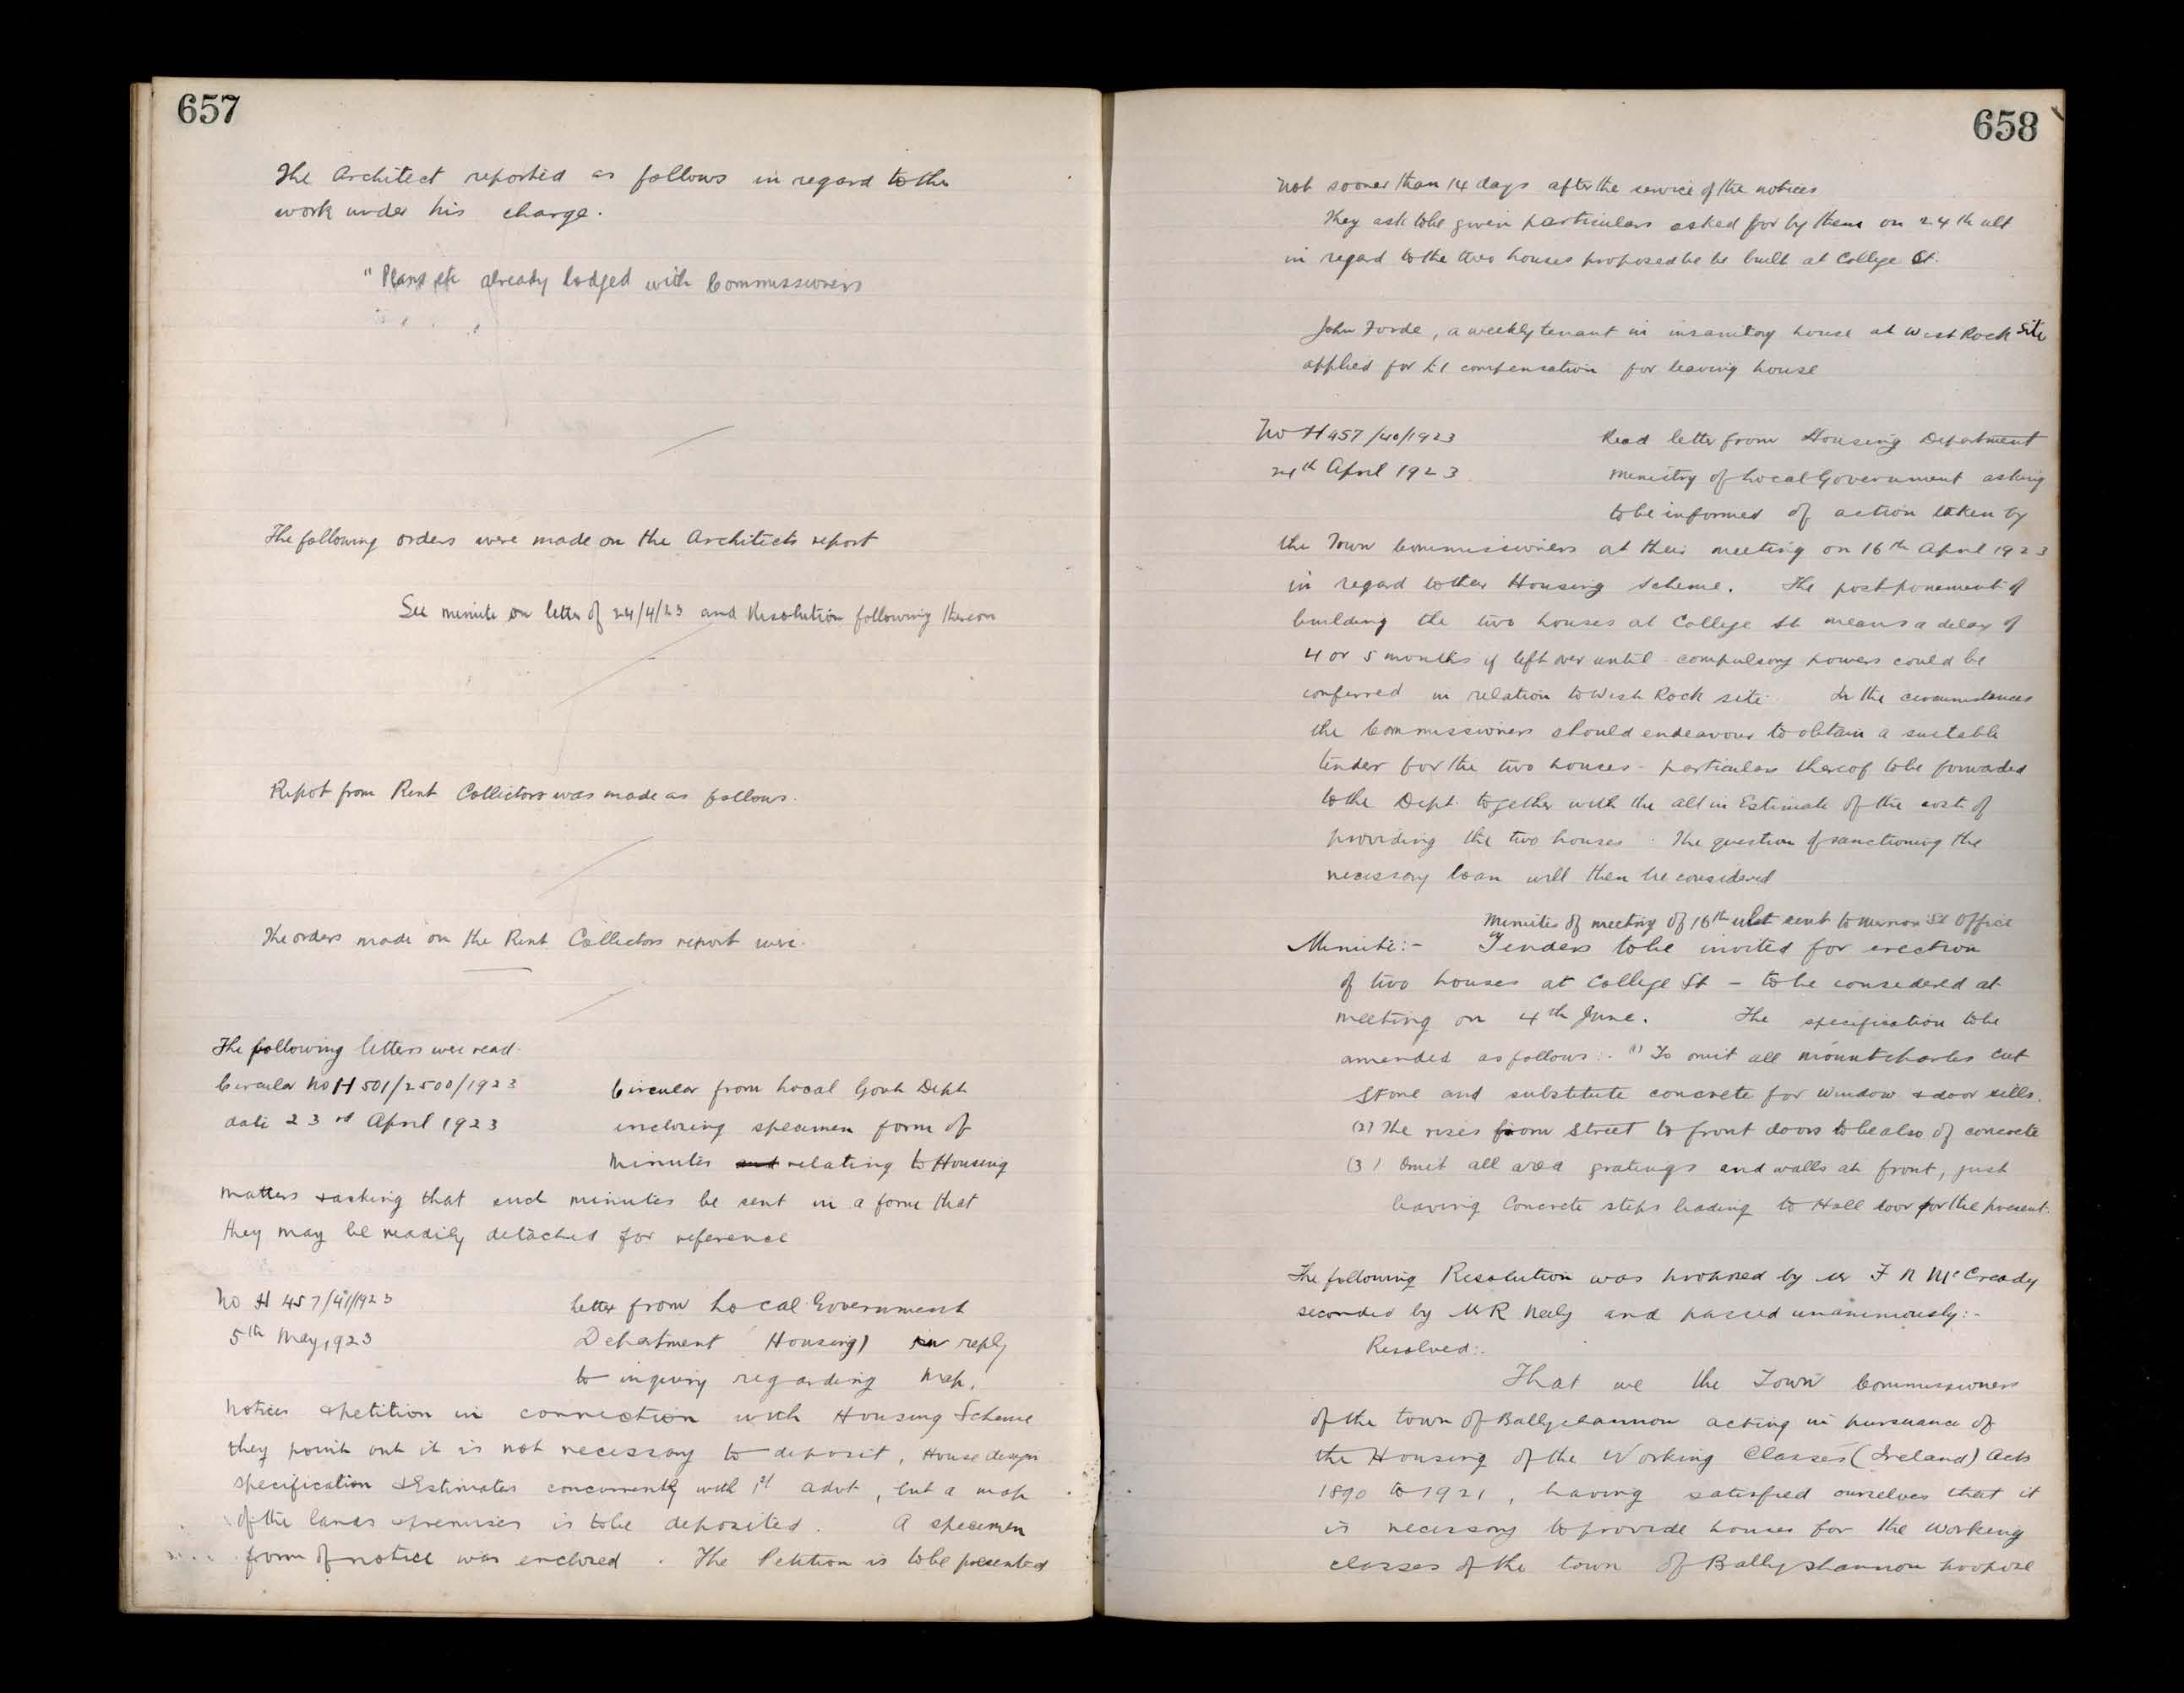 657
The Architect reported as follows in regard to the
work under his charge.
" Plans etc already lodged with Commissioners
The following orders were made on the Architects report
See minute on letter of 24/4/23 and Resolution following thereon
Repot from Rent Collectors was made as follows.
The orders made on the Rent Collectors report were.
The following letters were read.
Circular No H 501/2500/1923
date 23rd April 1923
Circular from Local Govt Dept
inclosing specimen form of
minutes and relating to Housing
matters & asking that such minutes be sent in a form that
they may be readily detached for reference
No H 457/41/1923
5th May, 923
Letter from Local Government
Department Housing) in reply
to inquiry regarding map,
notices & petition in connection with Housing Scheme
they point out it is not necessary to deposit, House design
specification & Estimates concurrently with 1st advt, but a map
of the lands & premises is to be deposited. A specimen
form of notice was enclosed. The Petition is to be presented
658
not sooner than 14 days after the service of the notices
They ask to be given particulars asked for by them on 24th ult
in regard to the two houses proposed be be built at College St.
John Forde, a weekly tenant in insanitory house at West Rock Site
applied for £1 compensation for leaving house
No H 457/40/1923
24th April 1923
Read letter from Housing Department
Ministry of Local Government asking
to be informed of action taken by
the Town Commissioners at their meeting on 16th April 1923
in regard to their Housing Scheme. The postponement of
building the two houses at College St means a delay of
4 or 5 months if left over until compulsory powers could be
conferred in relation to West Rock site. In the circumstances
the Commissioners should endeavour to obtain a suitable
tender for the two houses - particulars thereof to be forwarded
to the Dept. together with the all in Estimate of the cost of
providing the two houses. The question of sanctioning the
necessary loan will then be considered
Minutes of meeting of 16th ult sent to Merrion St Office
Minute:- Tenders to be invited for erection
of two houses at College St - to be considered at
meeting on 4th June. The specification to be
amended as follows:- (1) To omit all mountcharles cut
stone and substitute concrete for window & door sills.
(2) The rises from Street to front doors to be also of concrete
(3) Omit all area gratings and walls at front, just
leaving Concrete steps leading to Hall door for the present.
The following Resolution was proposed by Mr F R McCready
seconded by Mr R Neely and passed unanimously:-
Resolved:-
That we the Town Commissioners
of the town of Ballyshannon acting in pursuance of
the Housing of the Working Classes (Ireland) Acts
1890 to 1921, having satisfied ourselves that it
is necessary to provide houses for the working
classes of the town of Ballyshannon propose